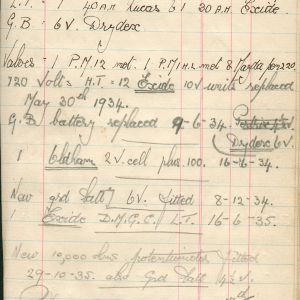 L.T. : 1 40 A.H. Lucas & 1 30 A.H. Exide.
G.B : 6 V. Drydex
Valves = 1 P.M.12 met. 1 P.M.1 H.L. met &
120 Volts H.T. = 12 Exide 10V units replaced
May 30th 1934.
G.B battery replaced 9-6-34.
Drydex 6V
1 Oldham 2V. cell plus 100. 16-6-34.
New grd batt 6V. fitted 8-12-34.
1 Exide D.M.G.C. L.T. 16-6-35.
New 10,000 ohms potentiometer fitted
29-10-35. also Grd batt